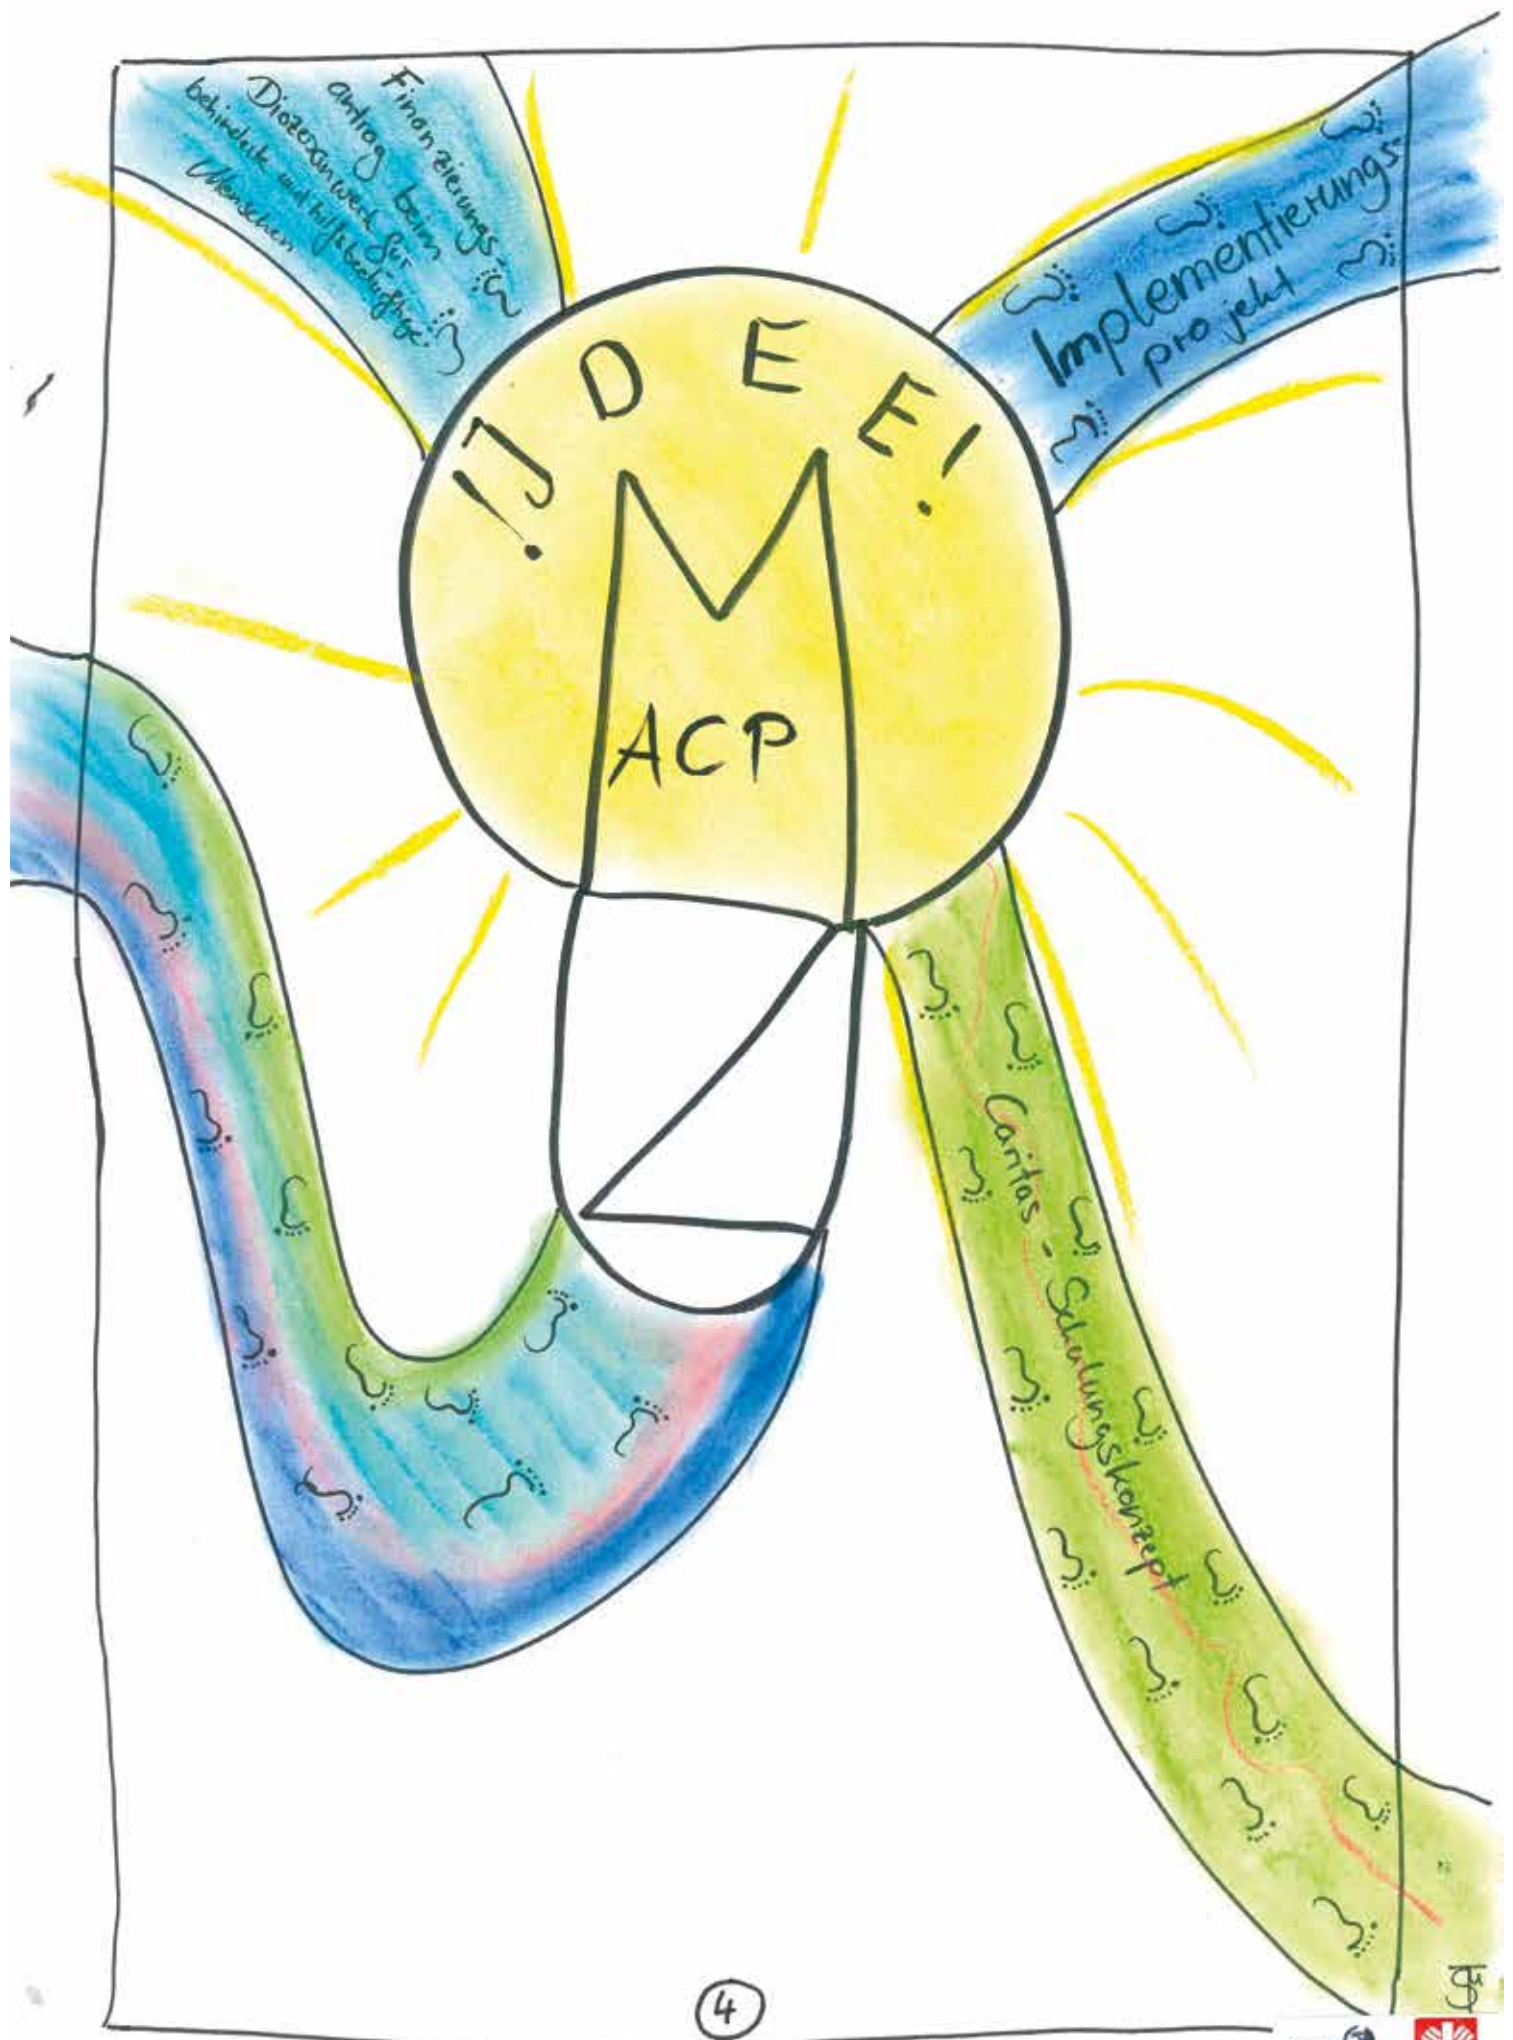 Finanzierungs-
antrag beim
Diözesanwerk für
behinderte und hilfsbedürftige
Menschen
Implementierungs-
projekt
!IDEE!
ACP
Caritas - Schulungskonzept
4